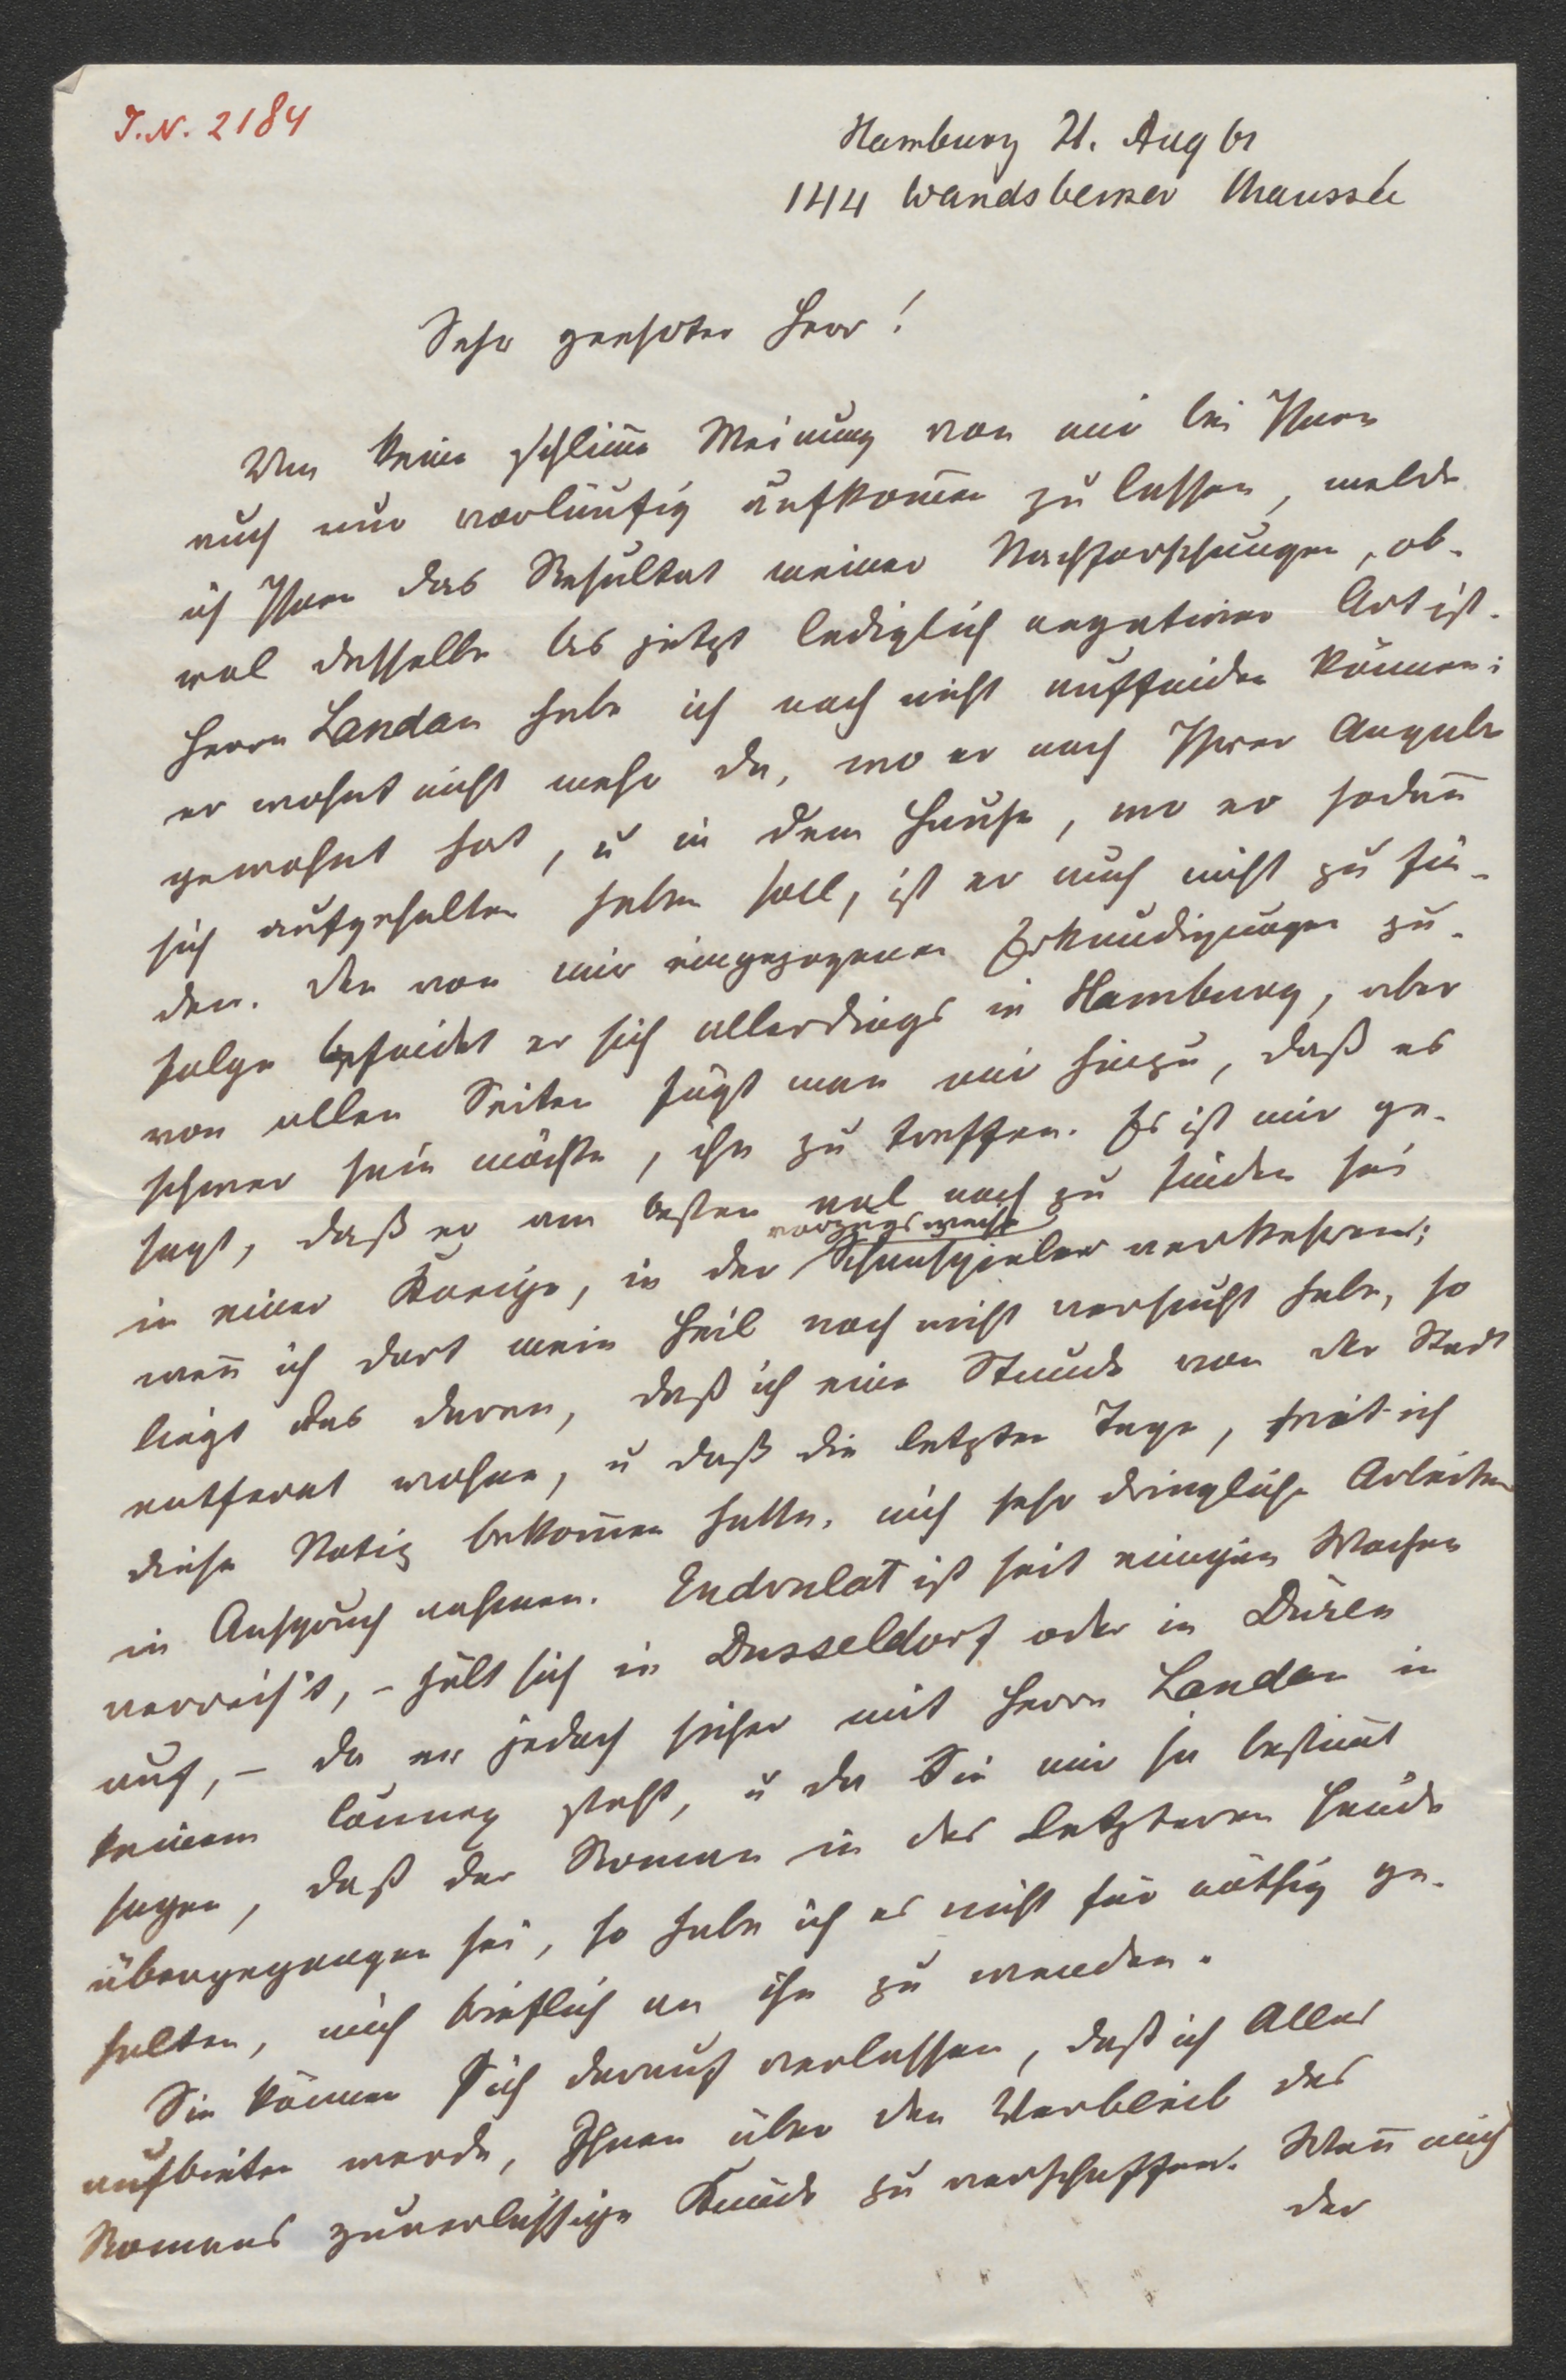 I.N. 2184
Hamburg 21. Aug 61
144 Wandsbecker Chaussée
Sehr geehrter Herr!
Um keine schlim̅e Meinung von mir bei Ihnen
auch nur vorläufig aufkom̅en zu lassen, melde
ich Ihnen das Resultat meiner Nachforschungen, ob-
wol dasselbe bis jetzt lediglich negativer Art ist.
Herrn Landau habe ich noch nicht auffinden können:
er wohnt nicht mehr da, wo er nach Ihrer Angabe
gewohnt hat, u in dem Hause, wo er sodan̅
sich aufgehalten haben soll, ist er auch nicht zu fin-
den. Den von mir eingezogenen Erkundigungen zu-
folge befindet er sich allerdings in Hamburg, aber
von allen Seiten fügt man mir hinzu, daß es
schwer sein möchte, ihn zu treffen. Es ist mir ge-
sagt, daß er am besten wol noch zu finden sei
in einer Kneipe, in der vorzugsweise Schauspieler verkehren;
wen̅ ich dort mein Heil noch nicht versucht habe, so
liegt das daran, daß ich eine Stunde von der Stadt
entfernt wohne, u daß die letzten Tage, seit ich
diese Notiz bekom̅en hatte, mich sehr dringliche Arbeiten
in Anspruch nahmen. Endrulat ist seit einigen Wochen
verreis't, – hält sich in Dusseldorf oder in Düren
auf, – da er jedoch sicher mit Herrn Landau in
keinem Connex steht, u da Sie mir so bestim̅t
sagen, daß der Roman in des Letzteren Hände
übergegangen sei, so habe ich es nicht für nöthig ge-
halten, mich brieflich an ihn zu wenden.
Sie können Sich darauf verlassen, daß ich Alles
aufbieten werde, Ihnen über den Verbleib des
Romans zuverlässige Kunde zu verschaffen. Wen̅ mich
der